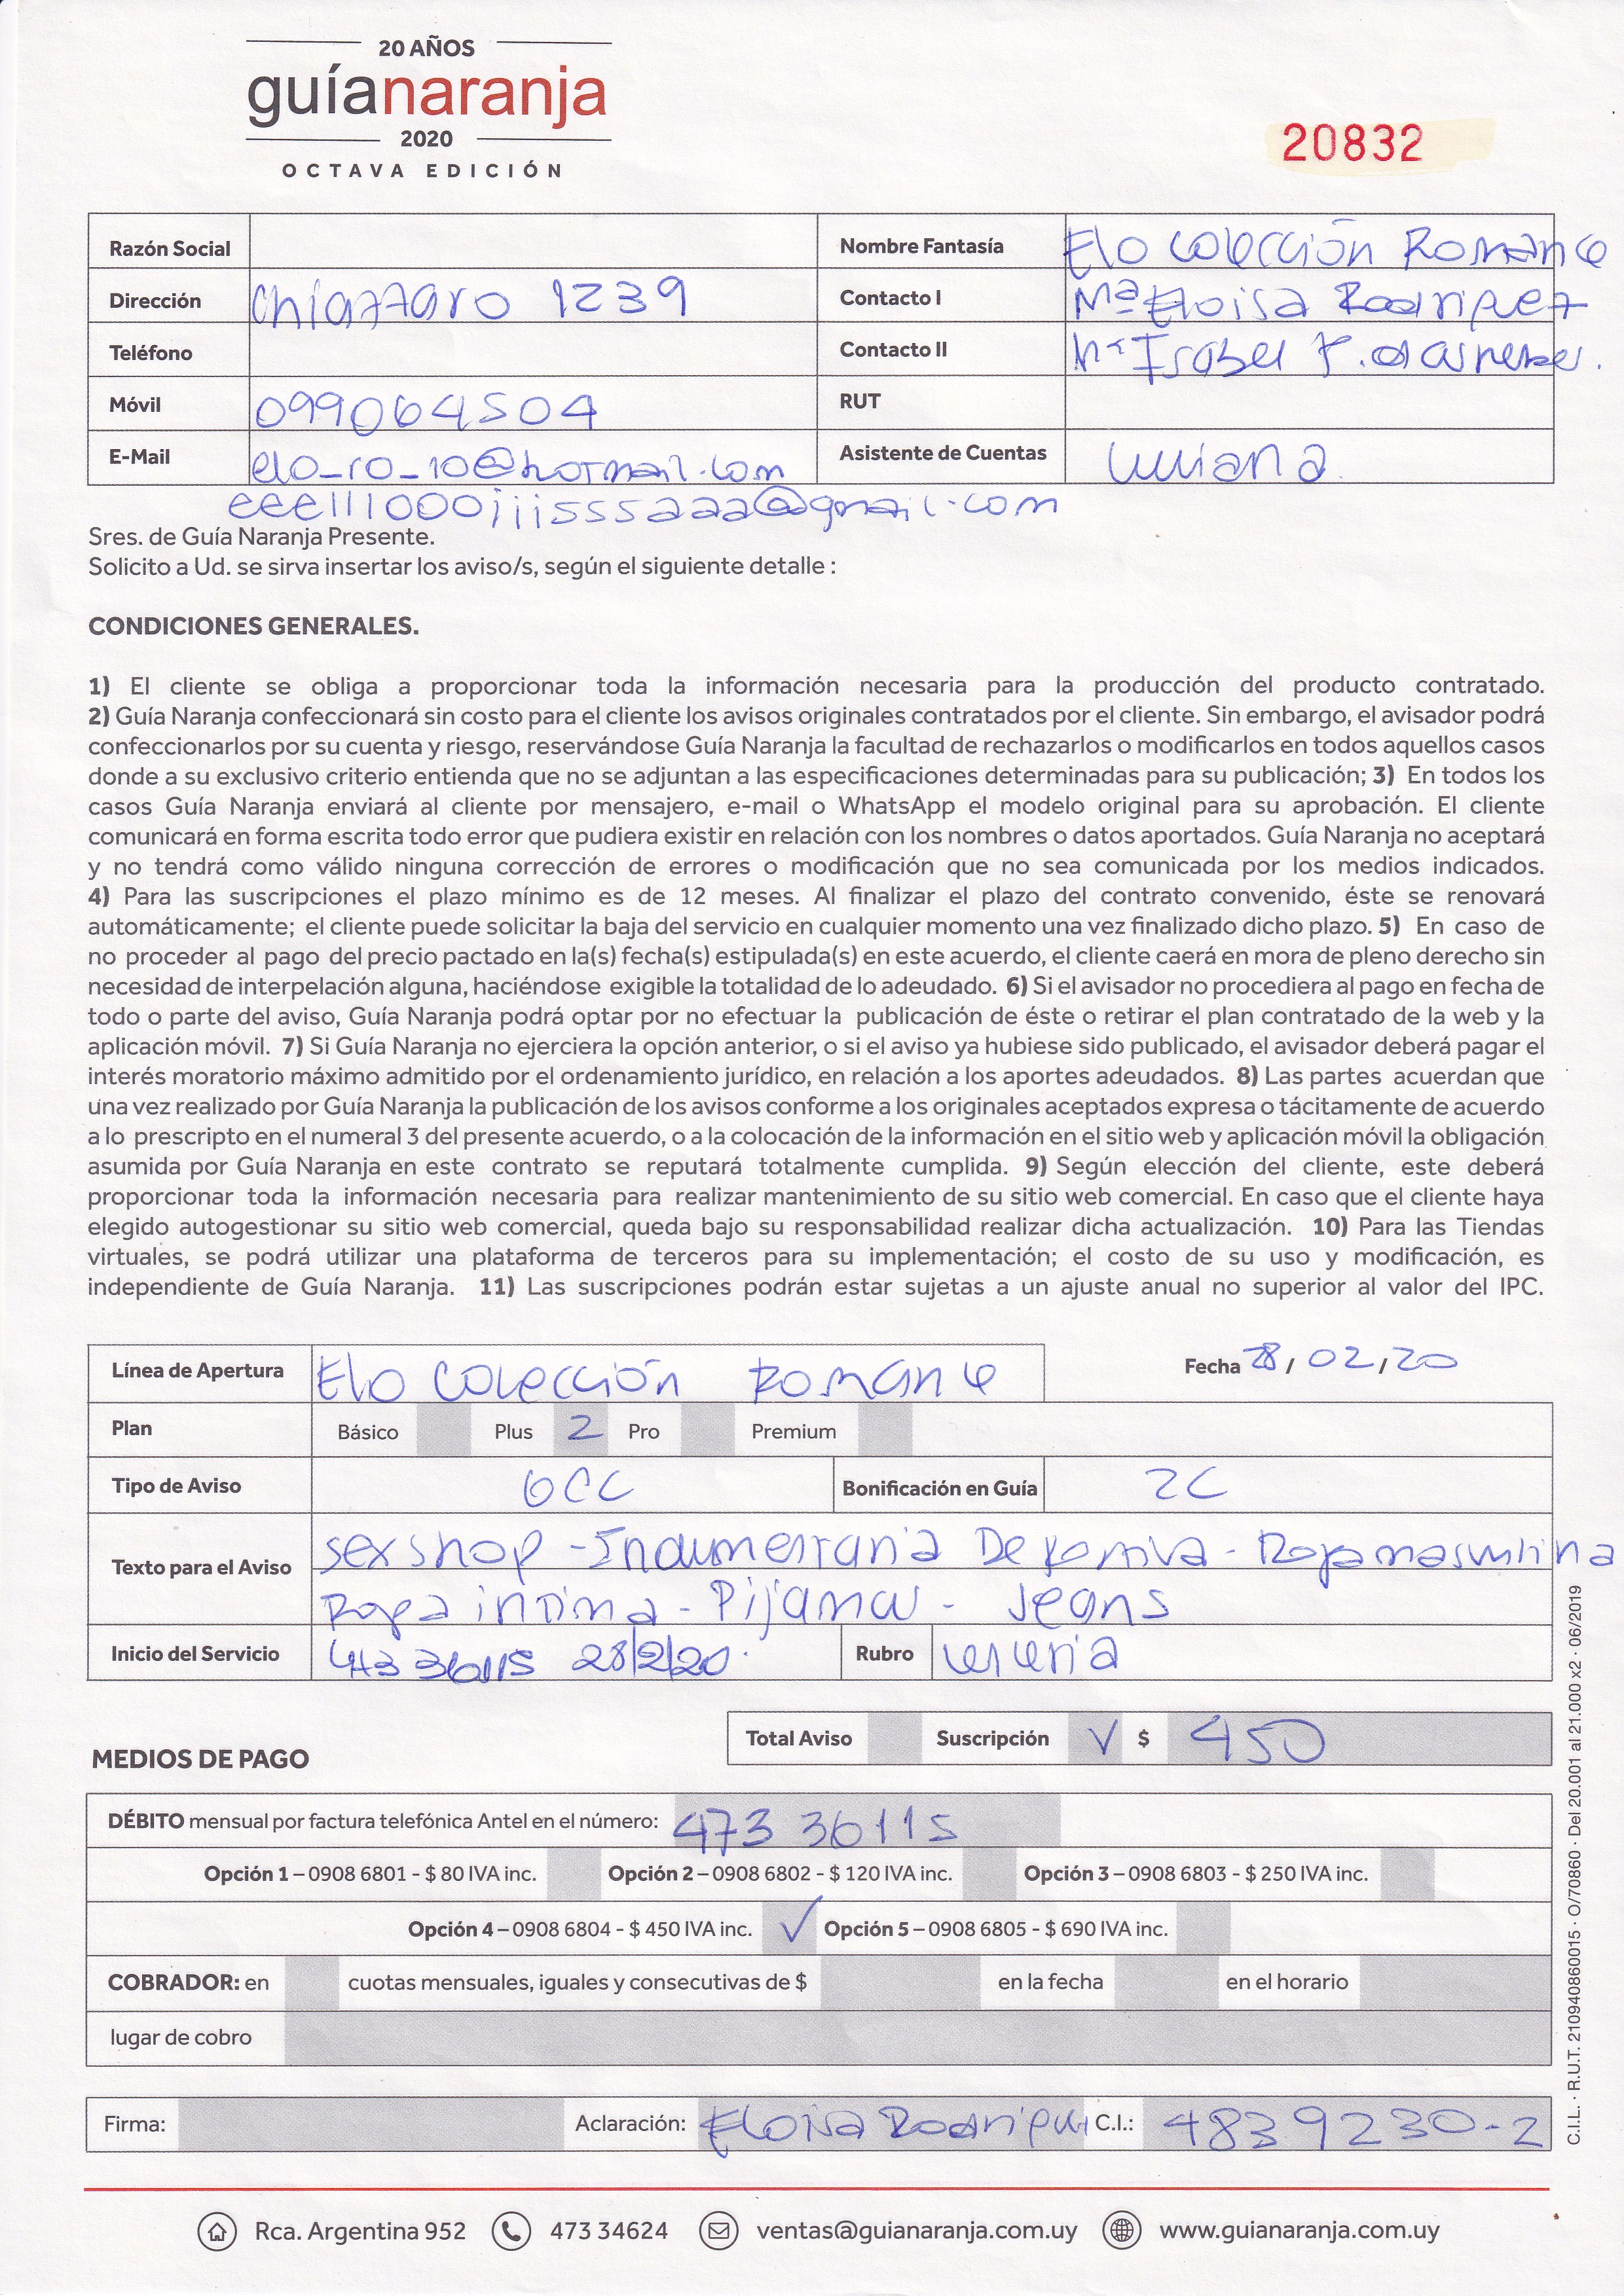 20 AÑOS
guíanaranja
2020
OCTAVA EDICIÓN
20832
Razón Social
Nombre Fantasía Elo Colección Romance
Dirección Chiazzaro 1239
Contacto I Mª Eloisa Rodriguez
Teléfono
Contacto II Mª Isabel
Móvil 099064504
RUT
E-Mail elo_ro_10@hotmail.com
Asistente de Cuentas Luciana
eeellloooiiisssaaa@gmail.com
Sres. de Guía Naranja Presente.
Solicito a Ud. se sirva insertar los aviso/s, según el siguiente detalle :
CONDICIONES GENERALES.
1) El cliente se obliga a proporcionar toda la información necesaria para la producción del producto contratado.
2) Guía Naranja confeccionará sin costo para el cliente los avisos originales contratados por el cliente. Sin embargo, el avisador podrá
confeccionarlos por su cuenta y riesgo, reservándose Guía Naranja la facultad de rechazarlos o modificarlos en todos aquellos casos
donde a su exclusivo criterio entienda que no se adjuntan a las especificaciones determinadas para su publicación; 3) En todos los
casos Guía Naranja enviará al cliente por mensajero, e-mail o WhatsApp el modelo original para su aprobación. El cliente
comunicará en forma escrita todo error que pudiera existir en relación con los nombres o datos aportados. Guía Naranja no aceptará
y no tendrá como válido ninguna corrección de errores o modificación que no sea comunicada por los medios indicados.
4) Para las suscripciones el plazo mínimo es de 12 meses. Al finalizar el plazo del contrato convenido, éste se renovará
automáticamente; el cliente puede solicitar la baja del servicio en cualquier momento una vez finalizado dicho plazo. 5) En caso de
no proceder al pago del precio pactado en la(s) fecha(s) estipulada(s) en este acuerdo, el cliente caerá en mora de pleno derecho sin
necesidad de interpelación alguna, haciéndose exigible la totalidad de lo adeudado. 6) Si el avisador no procediera al pago en fecha de
todo o parte del aviso, Guía Naranja podrá optar por no efectuar la publicación de éste o retirar el plan contratado de la web y la
aplicación móvil. 7) Si Guía Naranja no ejerciera la opción anterior, o si el aviso ya hubiese sido publicado, el avisador deberá pagar el
interés moratorio máximo admitido por el ordenamiento jurídico, en relación a los aportes adeudados. 8) Las partes acuerdan que
una vez realizado por Guía Naranja la publicación de los avisos conforme a los originales aceptados expresa o tácitamente de acuerdo
a lo prescripto en el numeral 3 del presente acuerdo, o a la colocación de la información en el sitio web y aplicación móvil la obligación
asumida por Guía Naranja en este contrato se reputará totalmente cumplida. 9) Según elección del cliente, este deberá
proporcionar toda la información necesaria para realizar mantenimiento de su sitio web comercial. En caso que el cliente haya
elegido autogestionar su sitio web comercial, queda bajo su responsabilidad realizar dicha actualización. 10) Para las Tiendas
virtuales, se podrá utilizar una plataforma de terceros para su implementación; el costo de su uso y modificación, es
independiente de Guía Naranja. 11) Las suscripciones podrán estar sujetas a un ajuste anual no superior al valor del IPC.
Línea de Apertura Elo Colección Romance
Fecha 28/02/20
Plan Básico Plus 2 Pro Premium
Tipo de Aviso 6CC
Bonificación en Guía 2C
Texto para el Aviso sexshop - Indumentaria Deportiva - Ropa masculina
Ropa intima - Pijamas - Jeans
Inicio del Servicio 473 36115 28/2/20.
Rubro Lenceria
Total Aviso Suscripción ✓ $ 450
MEDIOS DE PAGO
DÉBITO mensual por factura telefónica Antel en el número: 473 36115
Opción 1 – 0908 6801 - $ 80 IVA inc. Opción 2 – 0908 6802 - $ 120 IVA inc. Opción 3 – 0908 6803 - $ 250 IVA inc.
Opción 4 – 0908 6804 - $ 450 IVA inc. ✓ Opción 5 – 0908 6805 - $ 690 IVA inc.
COBRADOR: en cuotas mensuales, iguales y consecutivas de $ en la fecha en el horario
lugar de cobro
Firma: Aclaración: Eloisa Rodriguez C.I.: 4839230-2
C.I.L. · R.U.T. 210940860015 · O/70860 · Del 20.001 al 21.000 x2 · 06/2019
Rca. Argentina 952 473 34624 ventas@guianaranja.com.uy www.guianaranja.com.uy